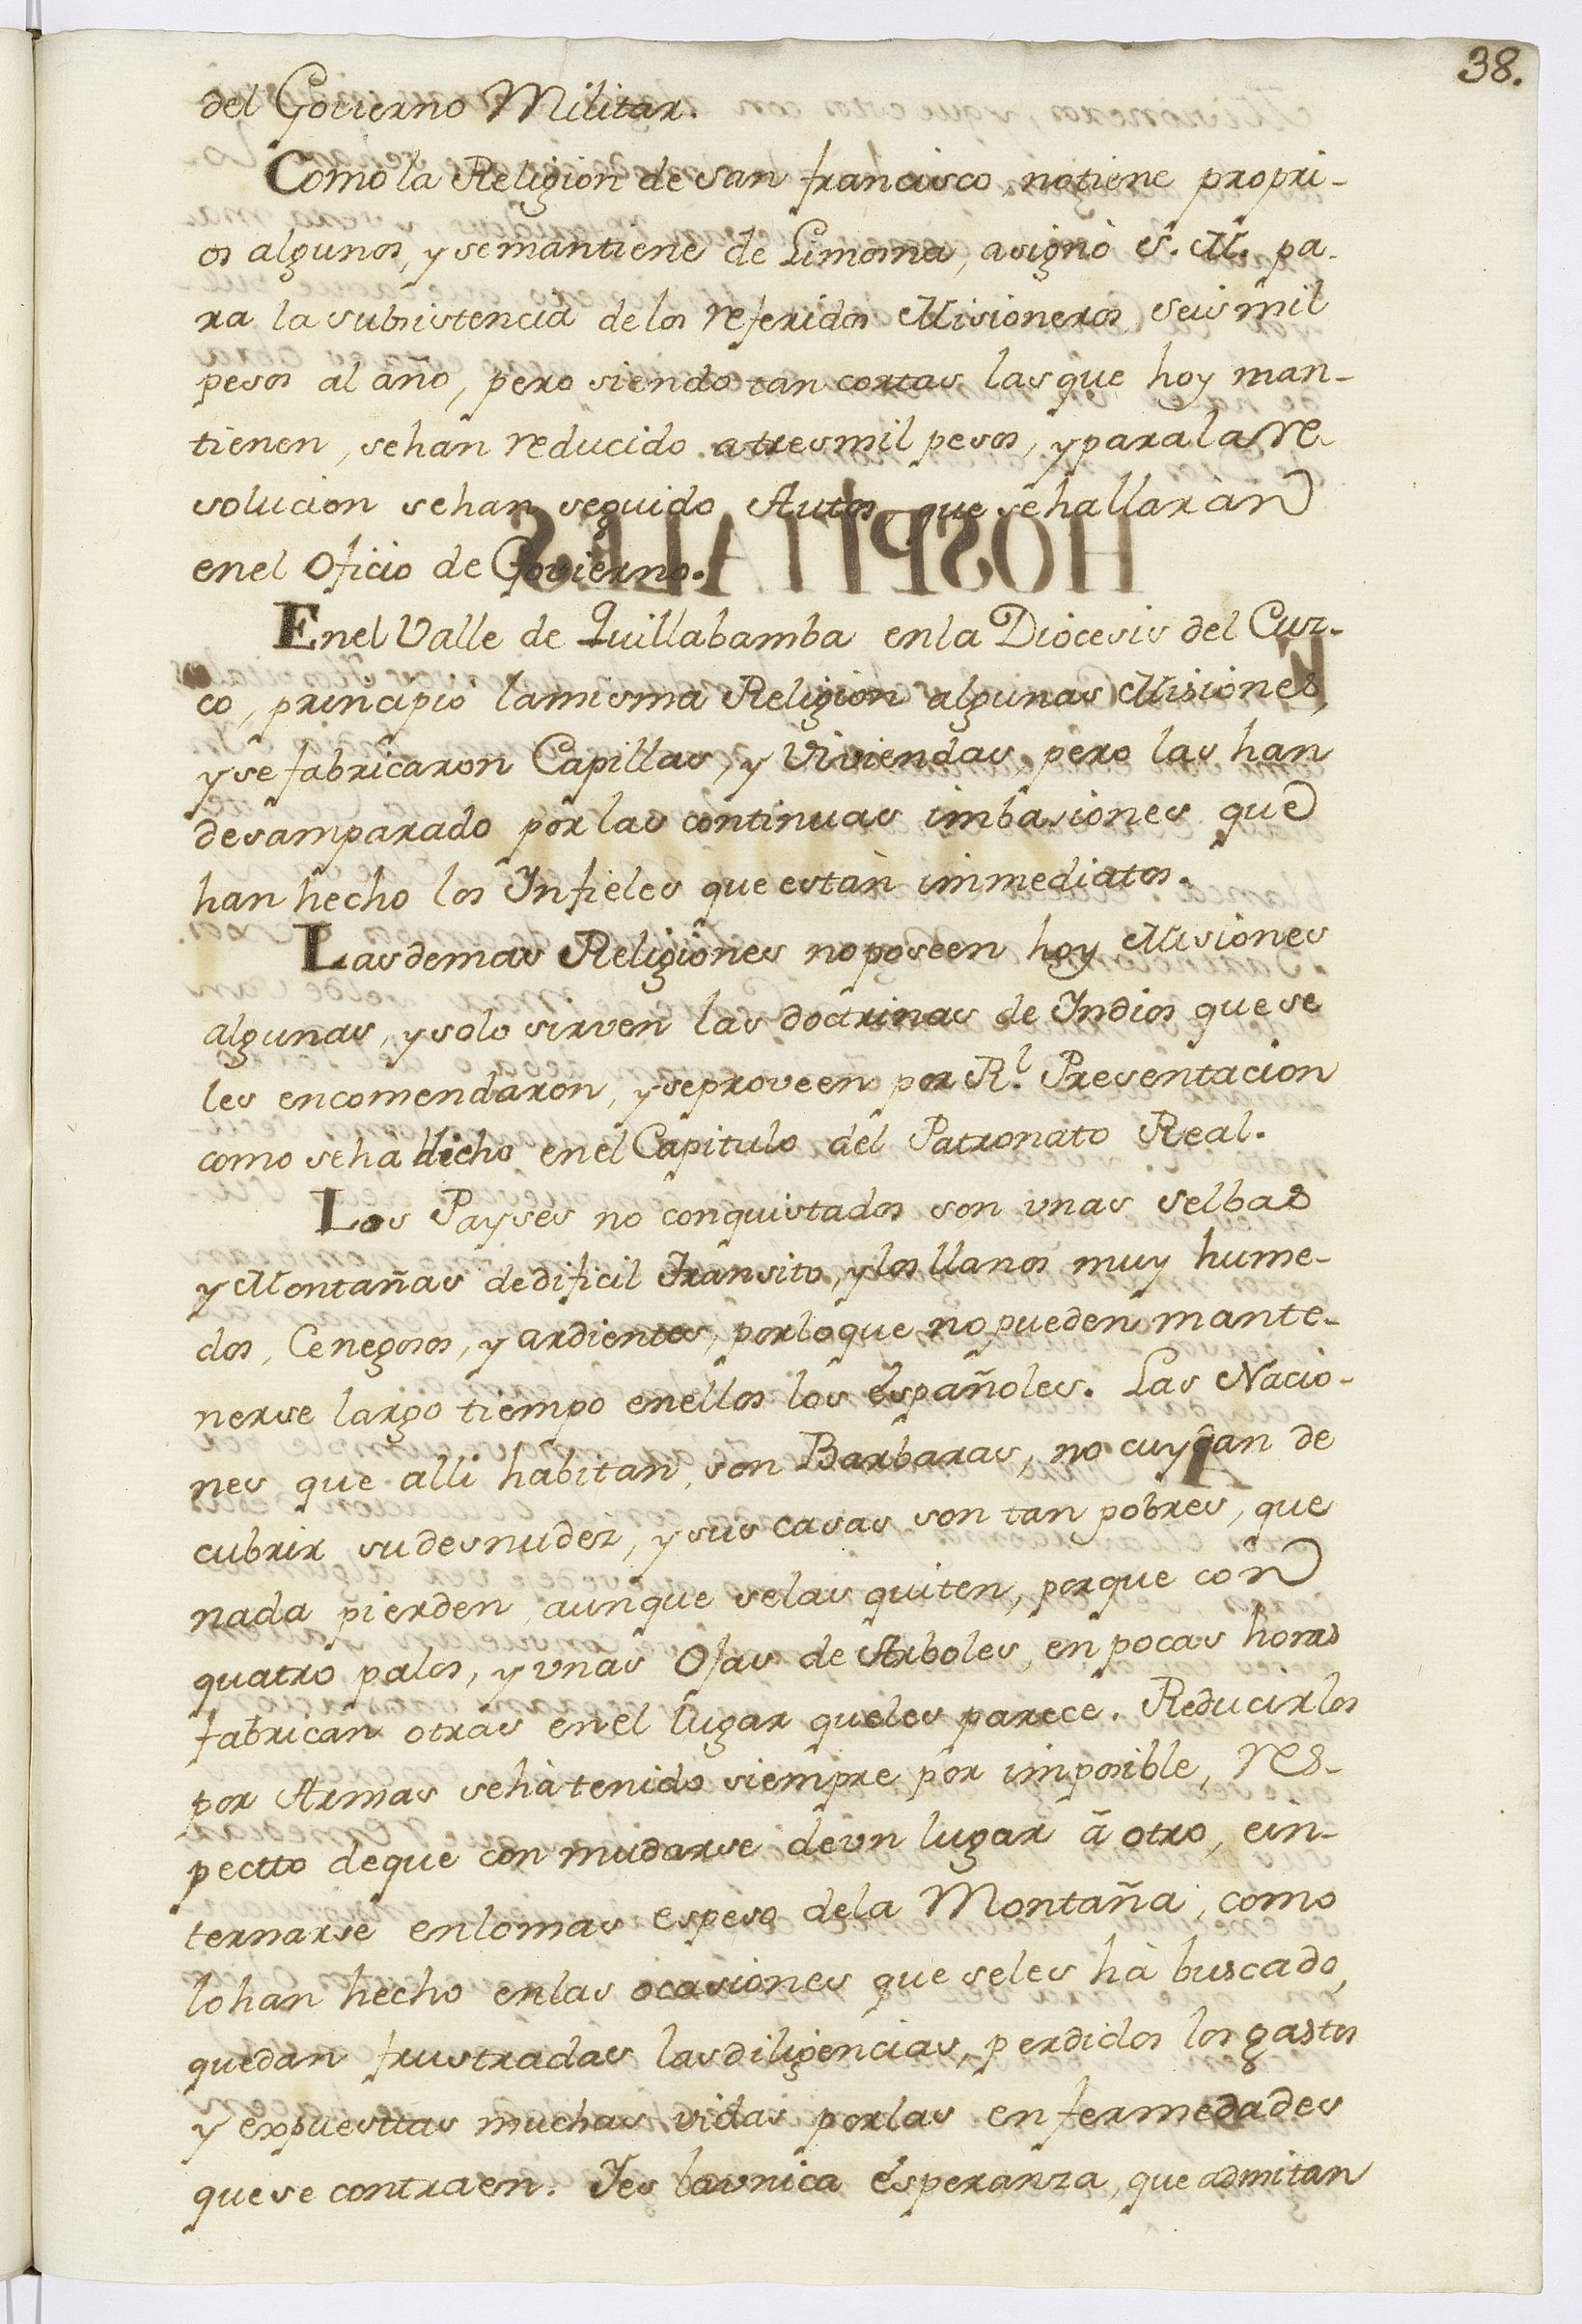 38.
del Govierno Militar.
Como la Religion de san francisco, no tiene propri-
os algunos, y se mantiene de Limosna, asignò S. M. pa-
ra la subsistencia de los referidos Misioneros, seis mil
pesos al año, pero siendo tan cortas las que hoy man-
tienen, se han reducido a tres mil pesos, y para la re-
solucion se han seguido Autos, que se hallaràn
en el Oficio de Govierno.
En el Valle de Quillabamba en la Diocesis del Cuz-
co, principiò la misma Religion algunas Misiones,
y se fabricaron Capillas, y Viviendas, pero las han
desamparado por las continuas imbasiones que
han hecho los Infieles que estàn immediatos.
Las demas Religiones no poseen hoy Misiones
algunas, y solo sirven las doctrinas de Indios que se
les encomendaron, y se proveen por Rl. Presentacion
como se hà dicho en el Capitulo del Patronato Real.
Los Payses no conquistados son unas selbas
y Montañas de dificil transito, y los llanos muy hume-
dos, Cenegosos, y ardientes, por lo que no pueden mante-
nerse largo tiempo en ellos los españoles. Las Nacio-
nes que alli habitan, son Barbaras, no cuydan de
cubrir su desnudez, y sus casas son tan pobres, que
nada pierden aunque se las quiten, porque con
quatro palos, y unas Ojas de Arboles, en pocas horas
fabrican otras en el lugar que les parece. Reducirlos
por Armas se hà tenido siempre por imposible, res-
pectto de que con mudarse de un lugar â otro, e in-
ternarse en lo mas espeso de la Montaña, como
lo han hecho en las ocasiones que se les hà buscado,
quedan frustradas las diligencias, perdidos los gastos
y expuesttas muchas vidas por las enfermedades
que se contraen. Ies la unica esperanza, que admitan